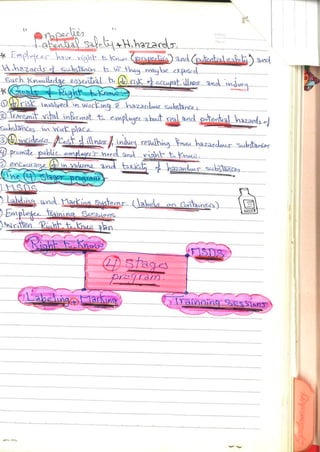 Properties
Potential safety + H.hazards.
* Employeer have right to know (properties) and (potential safety) and
H.hazards of substances to wc they may be exposed
Such Knowledge essential to ↓ risk of occupat. illness and injury
* Goals of Right to Know
① ↓ risk involved in working ē hazardous substances
② Transmit vital informat. to employees about real and potential hazards of
substances in work place
③ ↓ incidence / Cost of illness / injury resulting from hazardous substances
④ promote public employer's need and right to know.
⑤ encourage ↓ in volume and toxicity of hazardous substances
The (4) stages program
MSDS
Labeling and Marking systems (labels on Containers)
Employee Training Sessions
Written Right to Know plan
Right to Know
MSDS
④ Stage
program.
Labeling + Marking
Trainning sessions